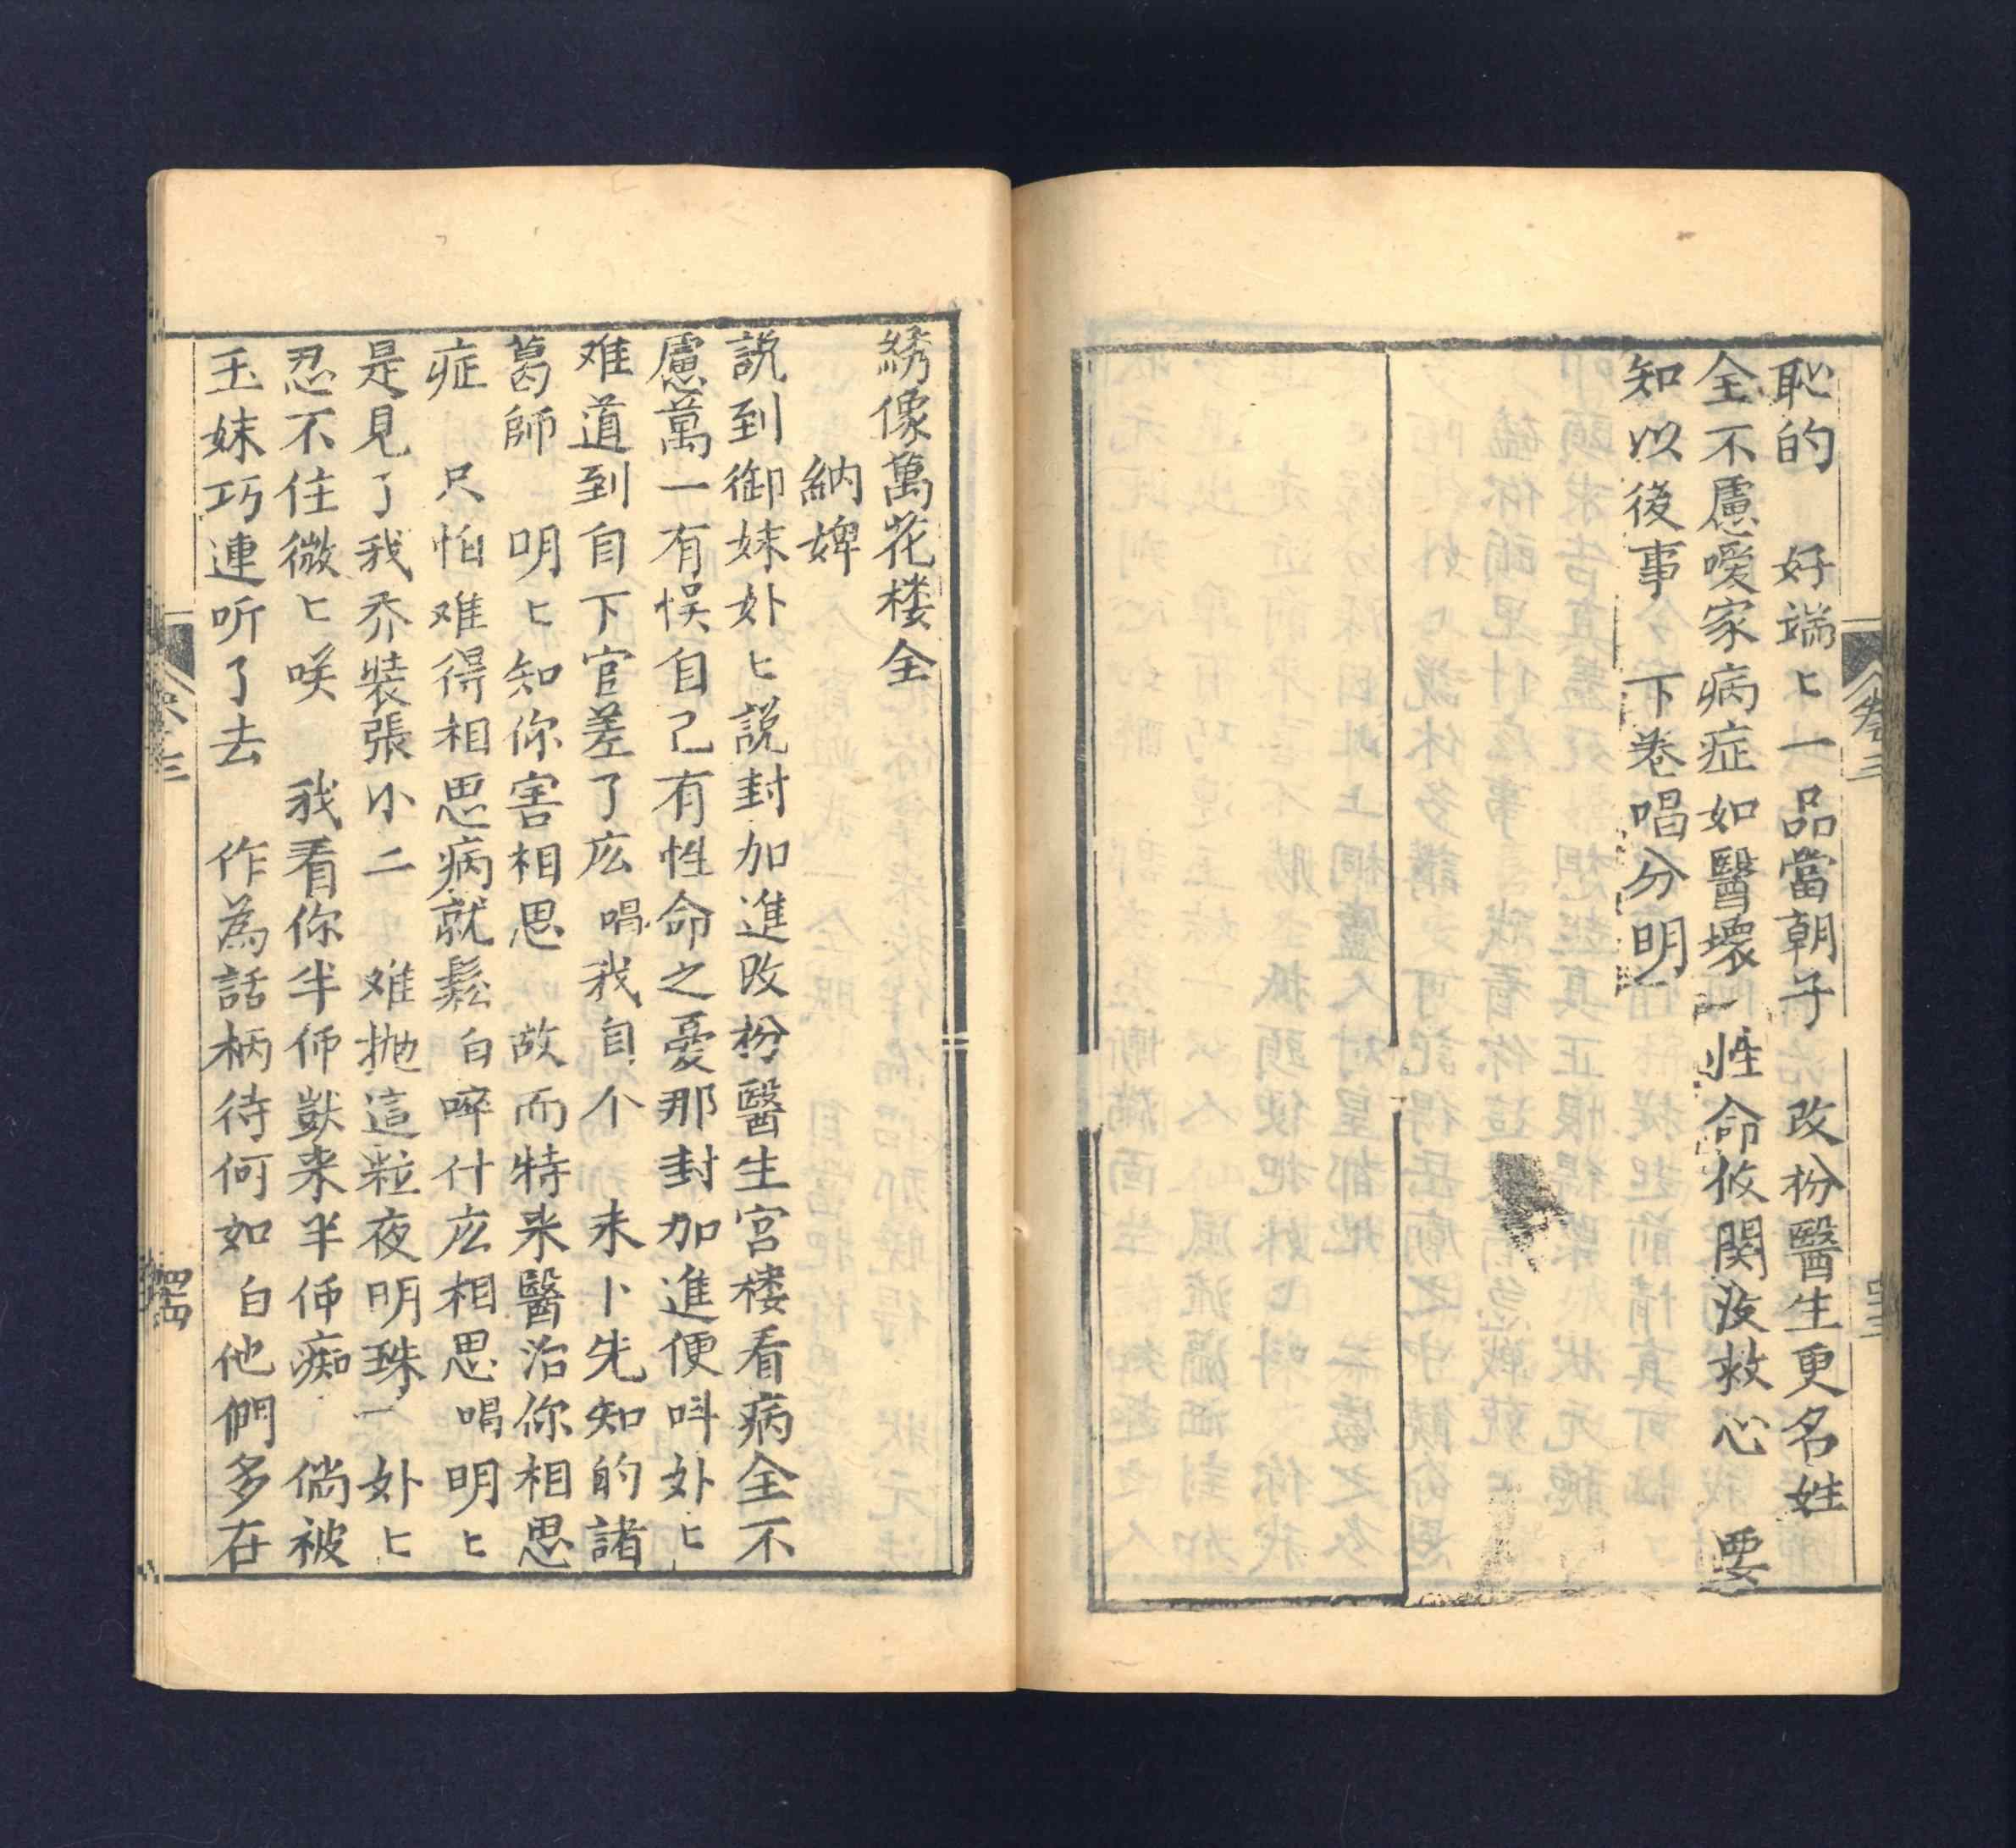 恥的　好端〻一品當朝子　改扮醫生更名姓
全不慮噯家病症如醫壞　性命攸関没救心　要
知以後事　下巻唱分明
卷三
綉像萬花楼全
納婢
説到御妹外〻説封加進改扮醫生宫楼看病全不
慮萬一有悮自己有性命之憂那封加進便呌外〻
难道到自下官差了庅　唱我自个　未卜先知的諸
葛師　明〻知你害相思　故而特来醫治你相思
症　尺怕难得相思病就鬆　白啐什庅相思　唱明〻
是見了我乔装張小二　难抛這粒夜明珠　外〻
忍不住微〻咲　我看你半侕獃来半侕痴　倘被
玉妹巧連听了去　作為話柄待何如　白他們多在